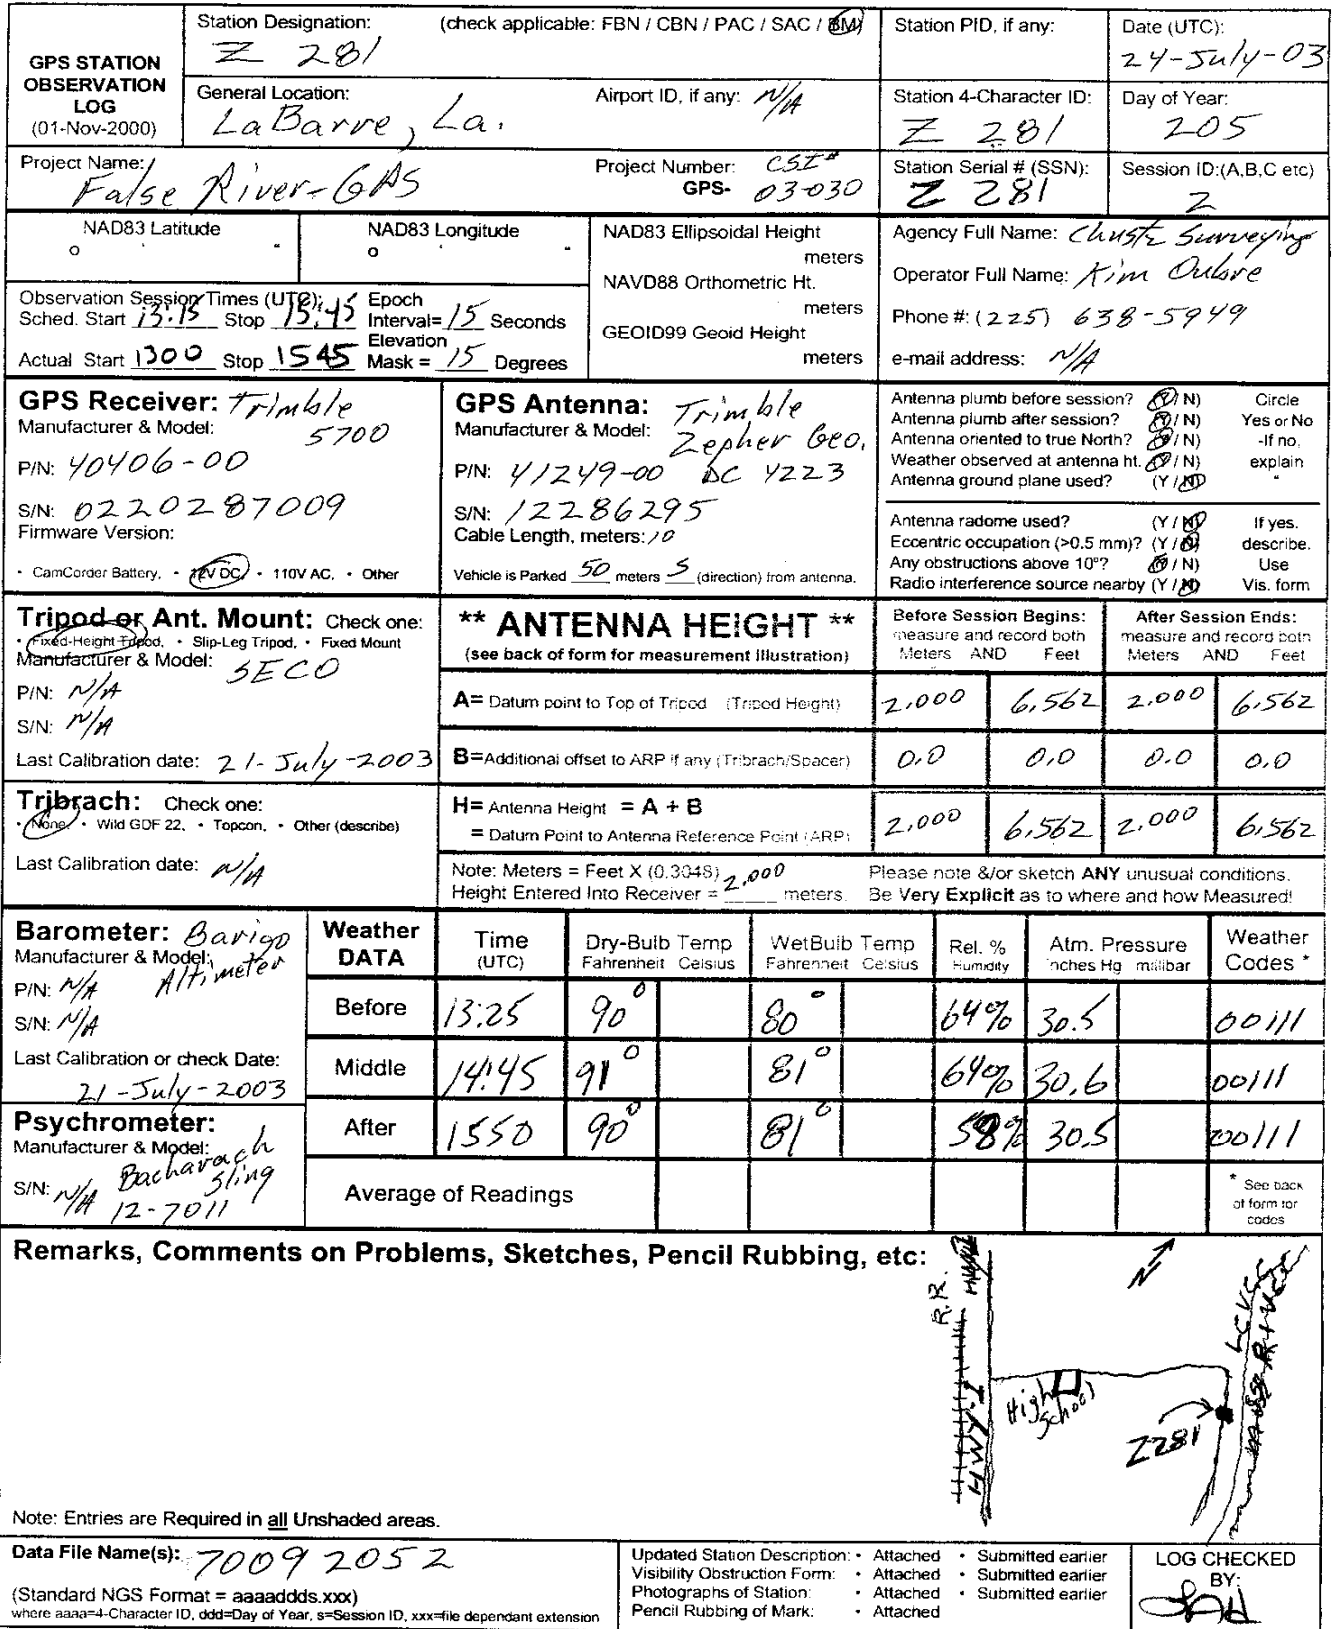 GPS STATION OBSERVATION LOG (01-Nov-2000)
Station Designation: (check applicable: FBN / CBN / PAC / SAC / BM)
Z 281
Station PID, if any:
Date (UTC):
24-July-03
General Location:
LaBarre, La.
Airport ID, if any: N/A
Station 4-Character ID:
Z 281
Day of Year:
205
Project Name:
False River-GPS
Project Number: CSI#
GPS- 03-030
Station Serial # (SSN):
Z 281
Session ID:(A,B,C etc)
2
NAD83 Latitude
o ' "
NAD83 Longitude
o ' "
NAD83 Ellipsoidal Height
meters
NAVD88 Orthometric Ht.
meters
GEOID99 Geoid Height
meters
Agency Full Name: Chustz Surveying
Operator Full Name: Kim Oubre
Phone #: (225) 638-5949
e-mail address: N/A
Observation Session Times (UTC):
Sched. Start 13:15 Stop 15:45
Epoch
Interval= 15 Seconds
Actual Start 1300 Stop 1545
Elevation
Mask = 15 Degrees
GPS Receiver: Trimble
Manufacturer & Model: 5700
P/N: 40406-00
S/N: 0220287009
Firmware Version:
• CamCorder Battery, • 12V DC, • 110V AC, • Other
GPS Antenna: Trimble
Manufacturer & Model: Zepher Geo.
P/N: 41249-00 DC 4223
S/N: 12286295
Cable Length, meters: 10
Vehicle is Parked 50 meters S (direction) from antenna.
Antenna plumb before session? (Y / N) Circle
Antenna plumb after session? (Y / N) Yes or No
Antenna oriented to true North? (Y / N) -If no,
Weather observed at antenna ht. (Y / N) explain
Antenna ground plane used? (Y / N) "
Antenna radome used? (Y / N) If yes.
Eccentric occupation (>0.5 mm)? (Y / N) describe.
Any obstructions above 10°? (Y / N) Use
Radio interference source nearby (Y / N) Vis. form
Tripod or Ant. Mount: Check one:
• Fixed-Height Tripod, • Slip-Leg Tripod, • Fixed Mount
Manufacturer & Model:
SECO
P/N: N/A
S/N: N/A
Last Calibration date: 21-July-2003
** ANTENNA HEIGHT **
(see back of form for measurement illustration)
Before Session Begins:
measure and record both
Meters AND Feet
After Session Ends:
measure and record both
Meters AND Feet
A= Datum point to Top of Tripod (Tripod Height)
2.000 6.562 2.000 6.562
B=Additional offset to ARP if any (Tribrach/Spacer)
0.0 0.0 0.0 0.0
Tribrach: Check one:
• None, • Wild GDF 22, • Topcon, • Other (describe)
Last Calibration date: N/A
H= Antenna Height = A + B
= Datum Point to Antenna Reference Point (ARP)
2.000 6.562 2.000 6.562
Note: Meters = Feet X (0.3048)
Height Entered Into Receiver = 2.000 meters.
Please note &/or sketch ANY unusual conditions.
Be Very Explicit as to where and how Measured!
Barometer: Barigo
Manufacturer & Model: Altimeter
P/N: N/A
S/N: N/A
Last Calibration or check Date:
21-July-2003
Psychrometer:
Manufacturer & Model:
Bacharach
Sling
S/N: N/A 12-7011
Weather DATA
Time (UTC)
Dry-Bulb Temp
Fahrenheit Celsius
WetBulb Temp
Fahrenheit Celsius
Rel. % Humidity
Atm. Pressure
inches Hg millibar
Weather Codes *
Before 13:25 90° 80° 64% 30.5 00111
Middle 14:45 91° 81° 64% 30.6 00111
After 1550 90° 81° 58% 30.5 00111
Average of Readings
* See back of form for codes
Remarks, Comments on Problems, Sketches, Pencil Rubbing, etc:
R.R.
HWY. 1
N
High School
Z281
Note: Entries are Required in all Unshaded areas.
Data File Name(s): 70092052
(Standard NGS Format = aaaaddds.xxx)
where aaaa=4-Character ID, ddd=Day of Year, s=Session ID, xxx=file dependant extension
Updated Station Description: • Attached • Submitted earlier
Visibility Obstruction Form: • Attached • Submitted earlier
Photographs of Station: • Attached • Submitted earlier
Pencil Rubbing of Mark: • Attached
LOG CHECKED BY: